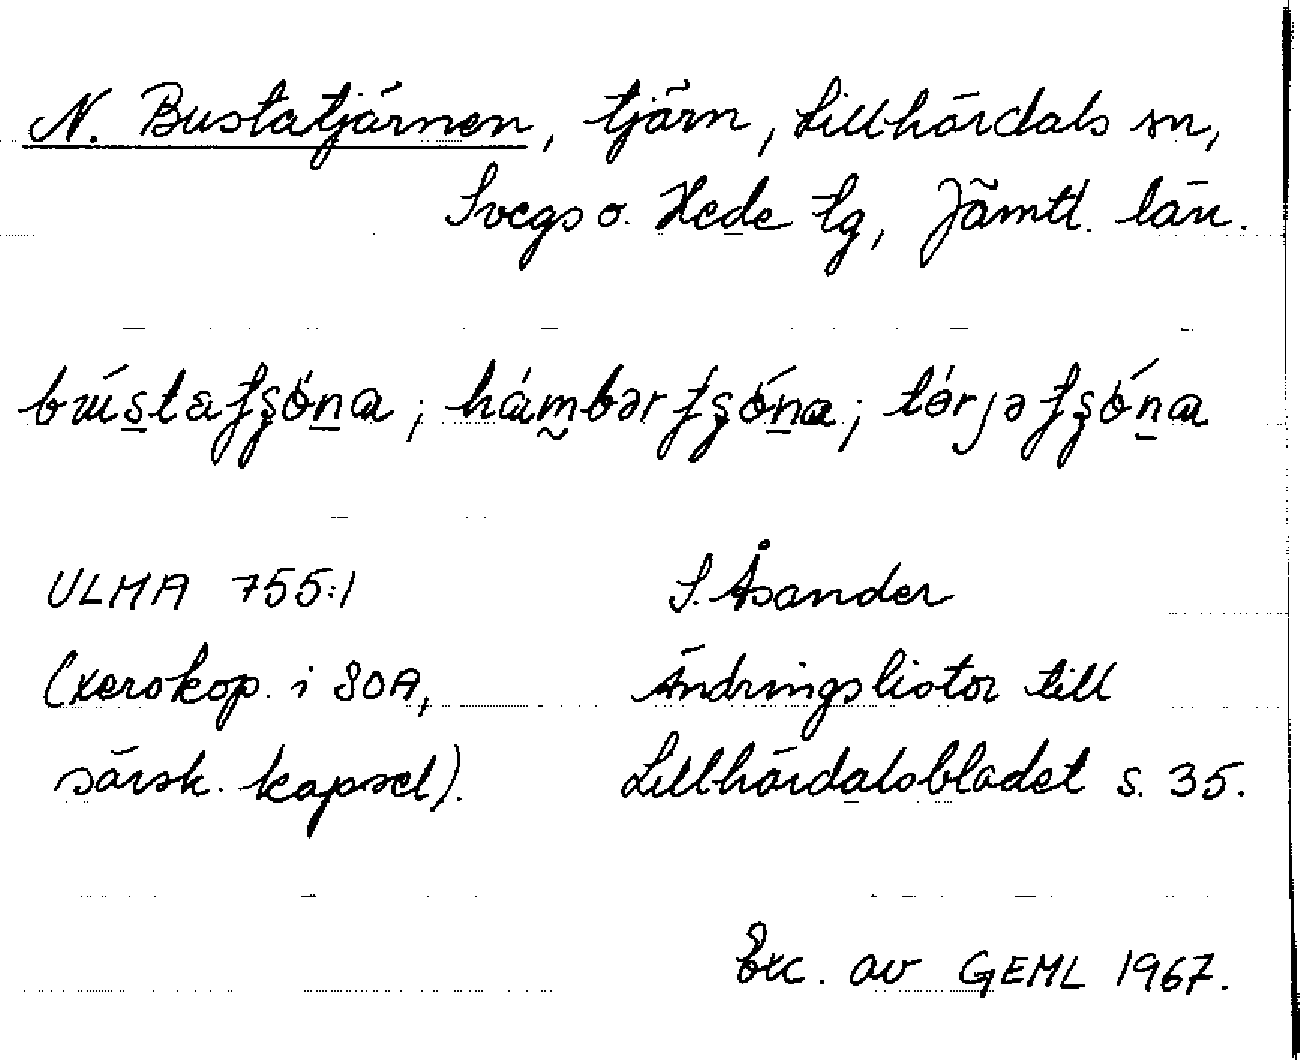 N. Bustatjärnen, tjärn, Lillhärdals sn,
Svegs o. Hede tg, Jämtl. län.
ULMA 755:1
S. Åsander
(xerokop. i SOA,
Ändringslistor till
särsk. kapsel).
Lillhärdalsbladet s. 35.
Exc. av GEML 1967.